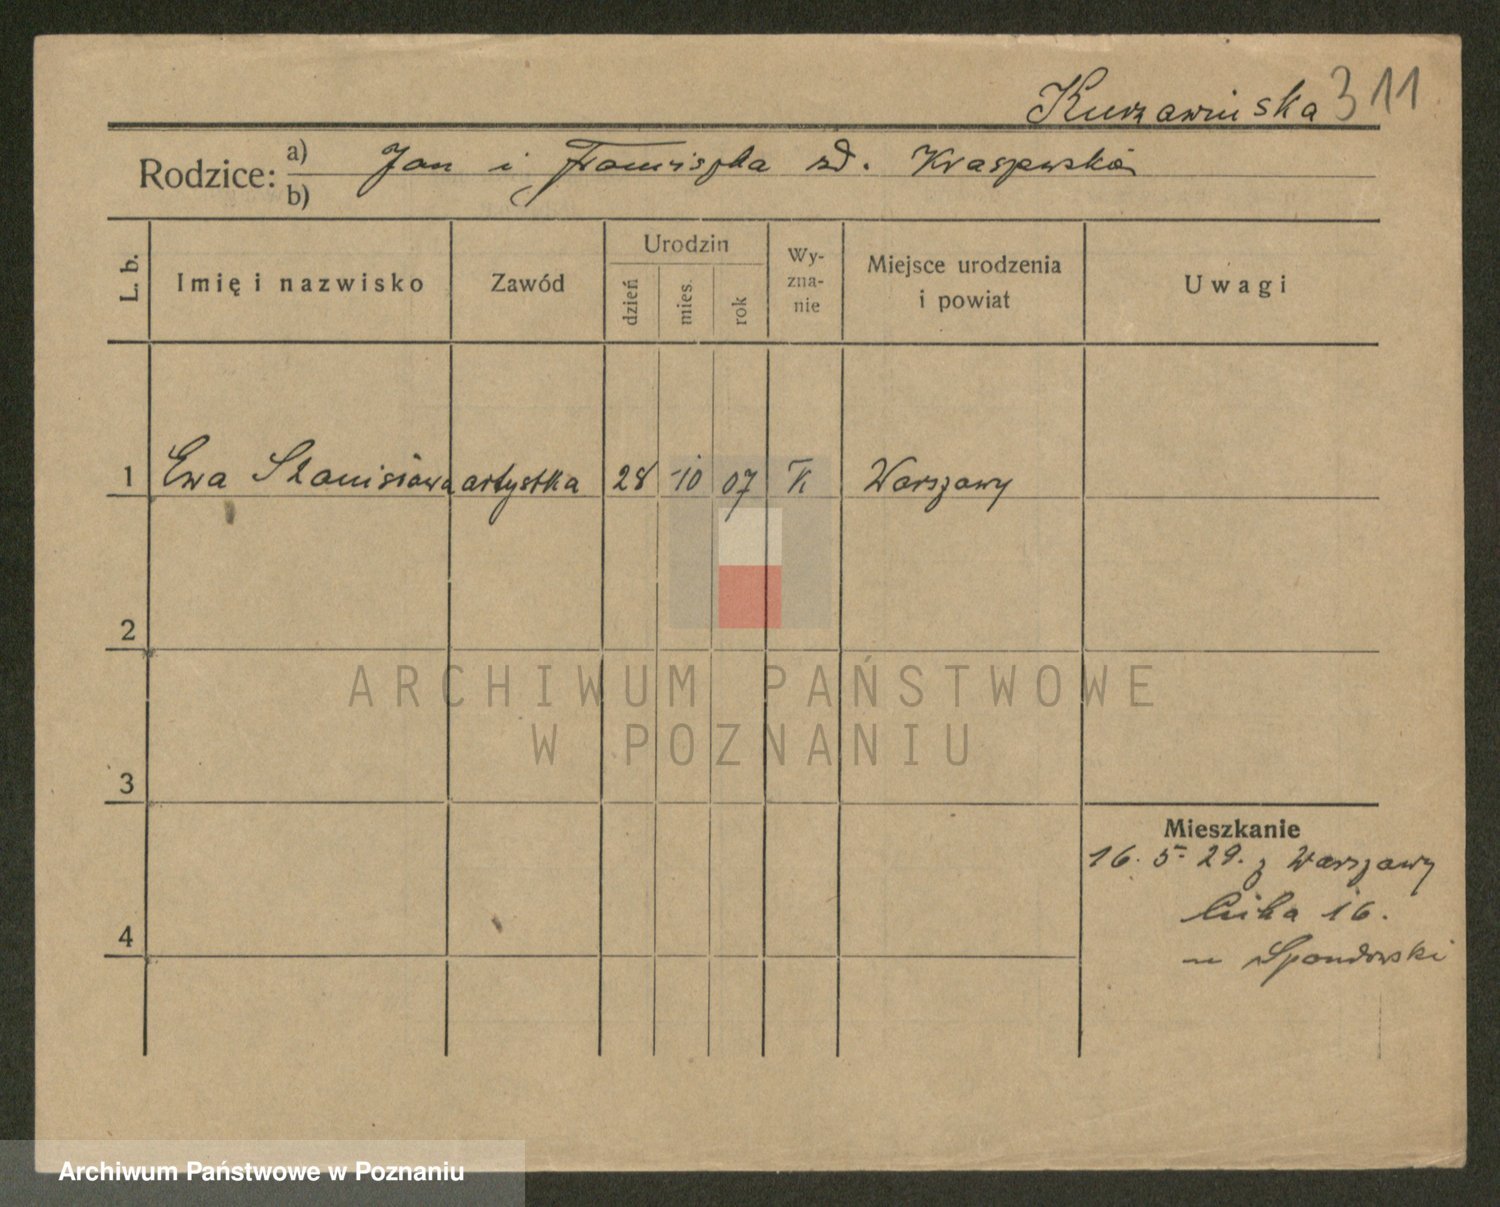 Kurzawińska 311
Rodzice: a) Jan i Franciszka zd. Kraszewska
b)
L. b. Imię i nazwisko Zawód Urodzin dzień mies. rok Wy-zna-nie Miejsce urodzenia i powiat Uwagi
1 Ewa Stanisława artystka 28 10 07 K Warszawy
2
ARCHIWUM PAŃSTWOWE
W POZNANIU
3
Mieszkanie
16. 5. 29. z Warszawy
16.
4
Archiwum Państwowe w Poznaniu